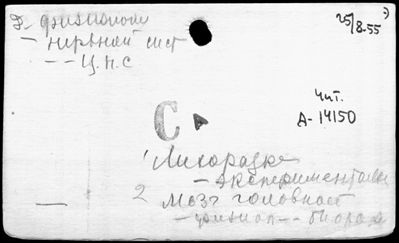 физиологи
25/8-55
- нервной сист
- - Ц.Н.С
Чит.
А-14150
С
Лихорадке
- экспериментальн
2 мозг головной
- физиол -